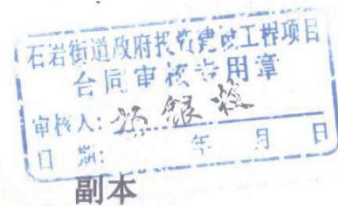 石岩街道政府投资建设工程项目
合同审核专用章
审核人:
日期: 年 月 日
副本